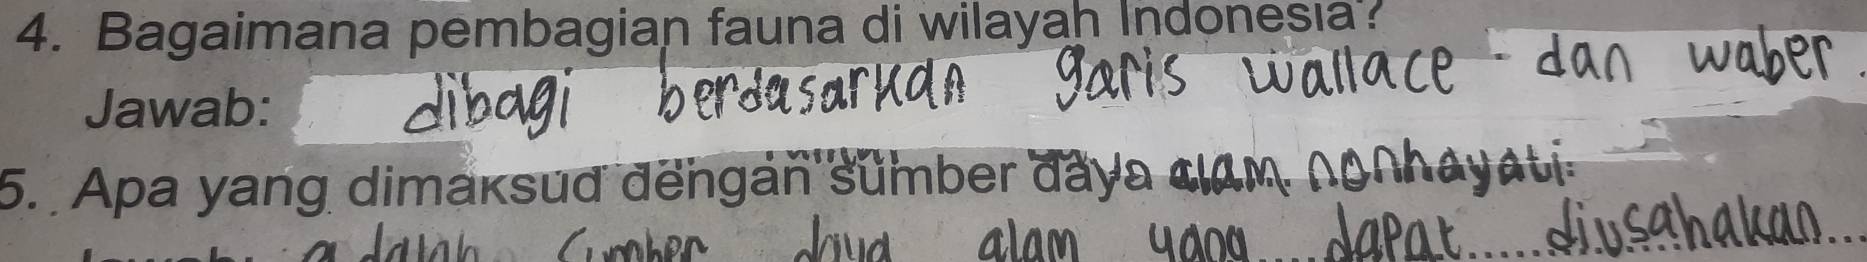 4. Bagaimana pembagian fauna di wilayah Indonesia?
Jawab: dibagi berdasarkan garis wallace dan waber.
5. Apa yang dimaksud dengan sumber daya alam nonhayati:
adalah sumber daya alam yang dapat diusahakan